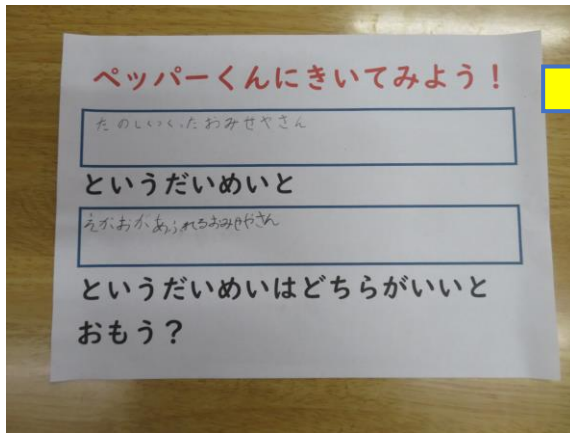 ペッパーくんにきいてみよう！
たのしいつくったおみせやさん
というだいめいと
えがおがあふれるおみせやさん
というだいめいはどちらがいいと
おもう？